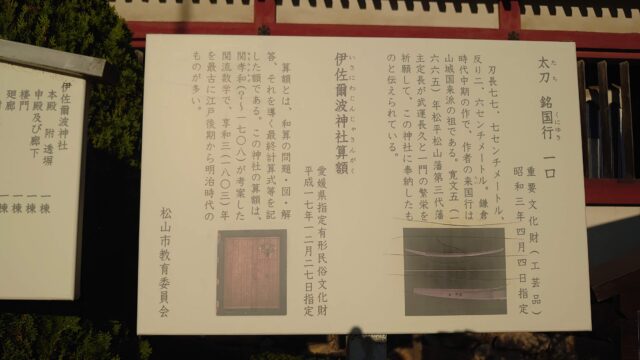 太刀 銘国行 一口
たち
くにゆき
重要文化財（工芸品）
昭和三年四月四日指定
刃長七七、七センチメートル、
反り二、六センチメートル。鎌倉
時代中期の作で、作者の来国行は
山城国来派の祖である。寛文五（一
六六五）年松平松山藩第三代藩
主定長が武運長久と一門の繁栄を
祈願して、この神社に奉納したも
のと伝えられている。
伊佐爾波神社算額
いさにわじんじゃさんがく
愛媛県指定有形民俗文化財
平成一七年一二月二七日指定
算額とは、和算の問題・図・解
答、それを導く最終計算式等を記
した額である。この神社の算額は、
関孝和（？～一七〇八）が考案した
関流数学で、享和三（一八〇三）年
を最古に江戸後期から明治時代の
ものが多い。
松山市教育委員会
伊佐爾波神社
本殿 附 透塀 一棟
申殿及び廊下 一棟
楼門 一棟
廻廊